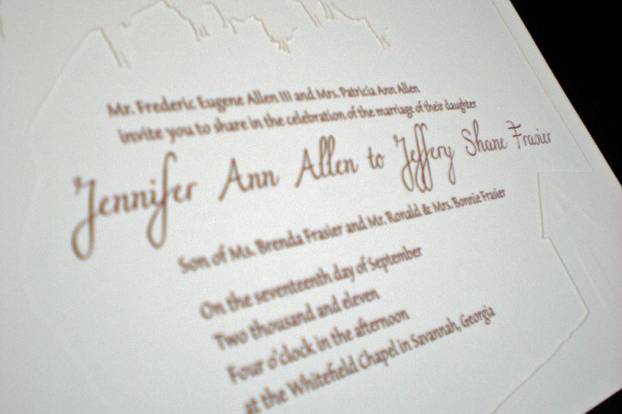 Mr. Frederic Eugene Allen III and Mrs. Patricia Ann Allen
invite you to share in the celebration of the marriage of their daughter
Jennifer Ann Allen to Jeffery Shane Frasier
Son of Ms. Brenda Frasier and Mr. Ronald & Mrs. Bonnie Frasier
On the seventeenth day of September
Two thousand and eleven
Four o'clock in the afternoon
at the Whitefield Chapel in Savannah, Georgia